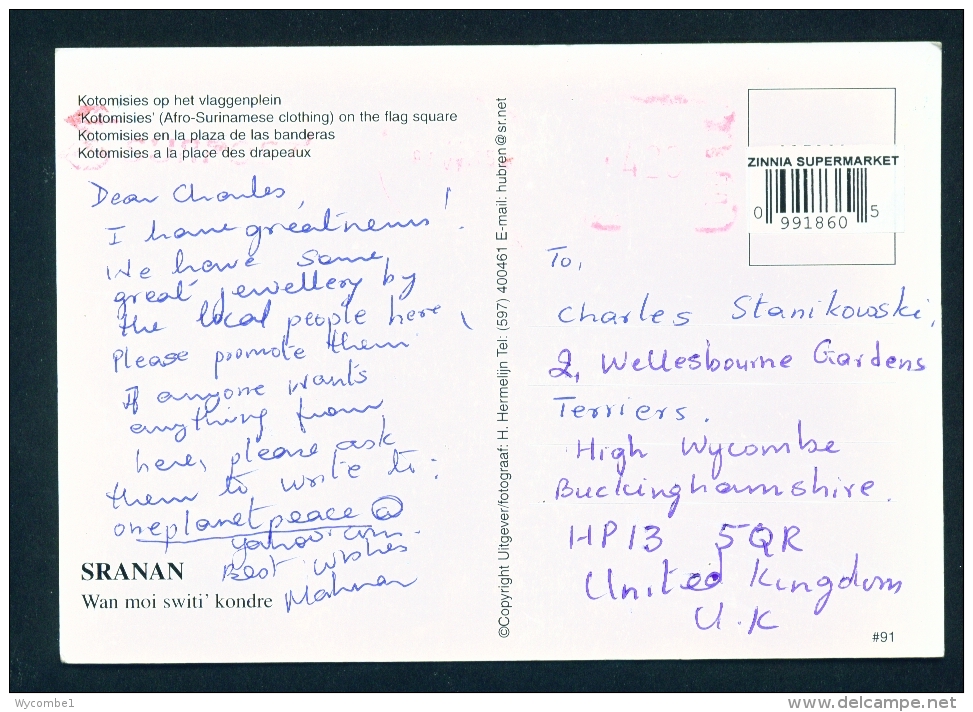 Kotomisies op het vlaggenplein
'Kotomisies' (Afro-Surinamese clothing) on the flag square
Kotomisies en la plaza de las banderas
Kotomisies a la place des drapeaux
Dear Charles,
I have great news!
We have some
great jewellery by
the local people here
Please promote them
If anyone wants
anything from
here, please ask
them to write to:
oneplanetpeace@
yahoo.com.
Best wishes
SRANAN
Wan moi switi' kondre
©Copyright Uitgever/fotograaf: H. Hermelijn Tel: (597) 400461 E-mail: hubren@sr.net
ZINNIA SUPERMARKET
0 991860 5
To,
Charles Stanikowski,
2, Wellesbourne Gardens
Terriers.
High Wycombe
Buckinghamshire.
HP13 5QR
United Kingdom
U.K
#91
Wycombe1
www.delcampe.net